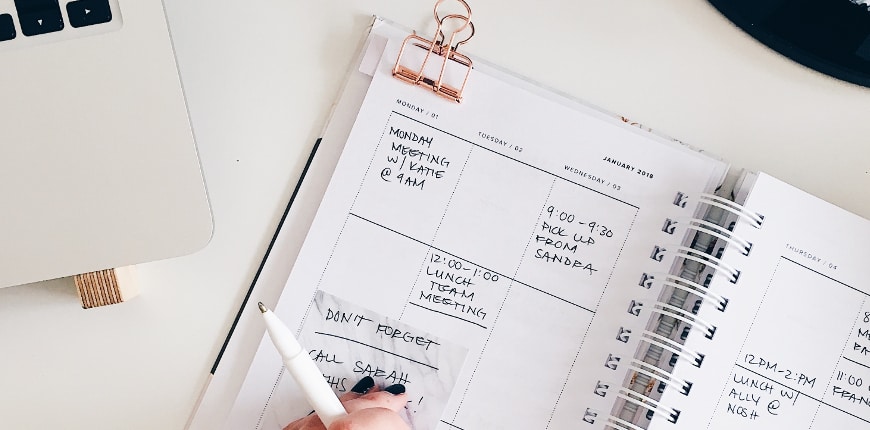 JANUARY 2019
MONDAY / 01
TUESDAY / 02
WEDNESDAY / 03
MONDAY
MEETING
W/ KATIE
@ 9AM
9:00 - 9:30
PICK UP
FROM
SANDRA
12:00-1:00
LUNCH
TEAM
MEETING
DON'T FORGET
CALL SARAH
THURSDAY / 04
12PM-2PM
LUNCH W/
ALLY @
NOSH
11:00